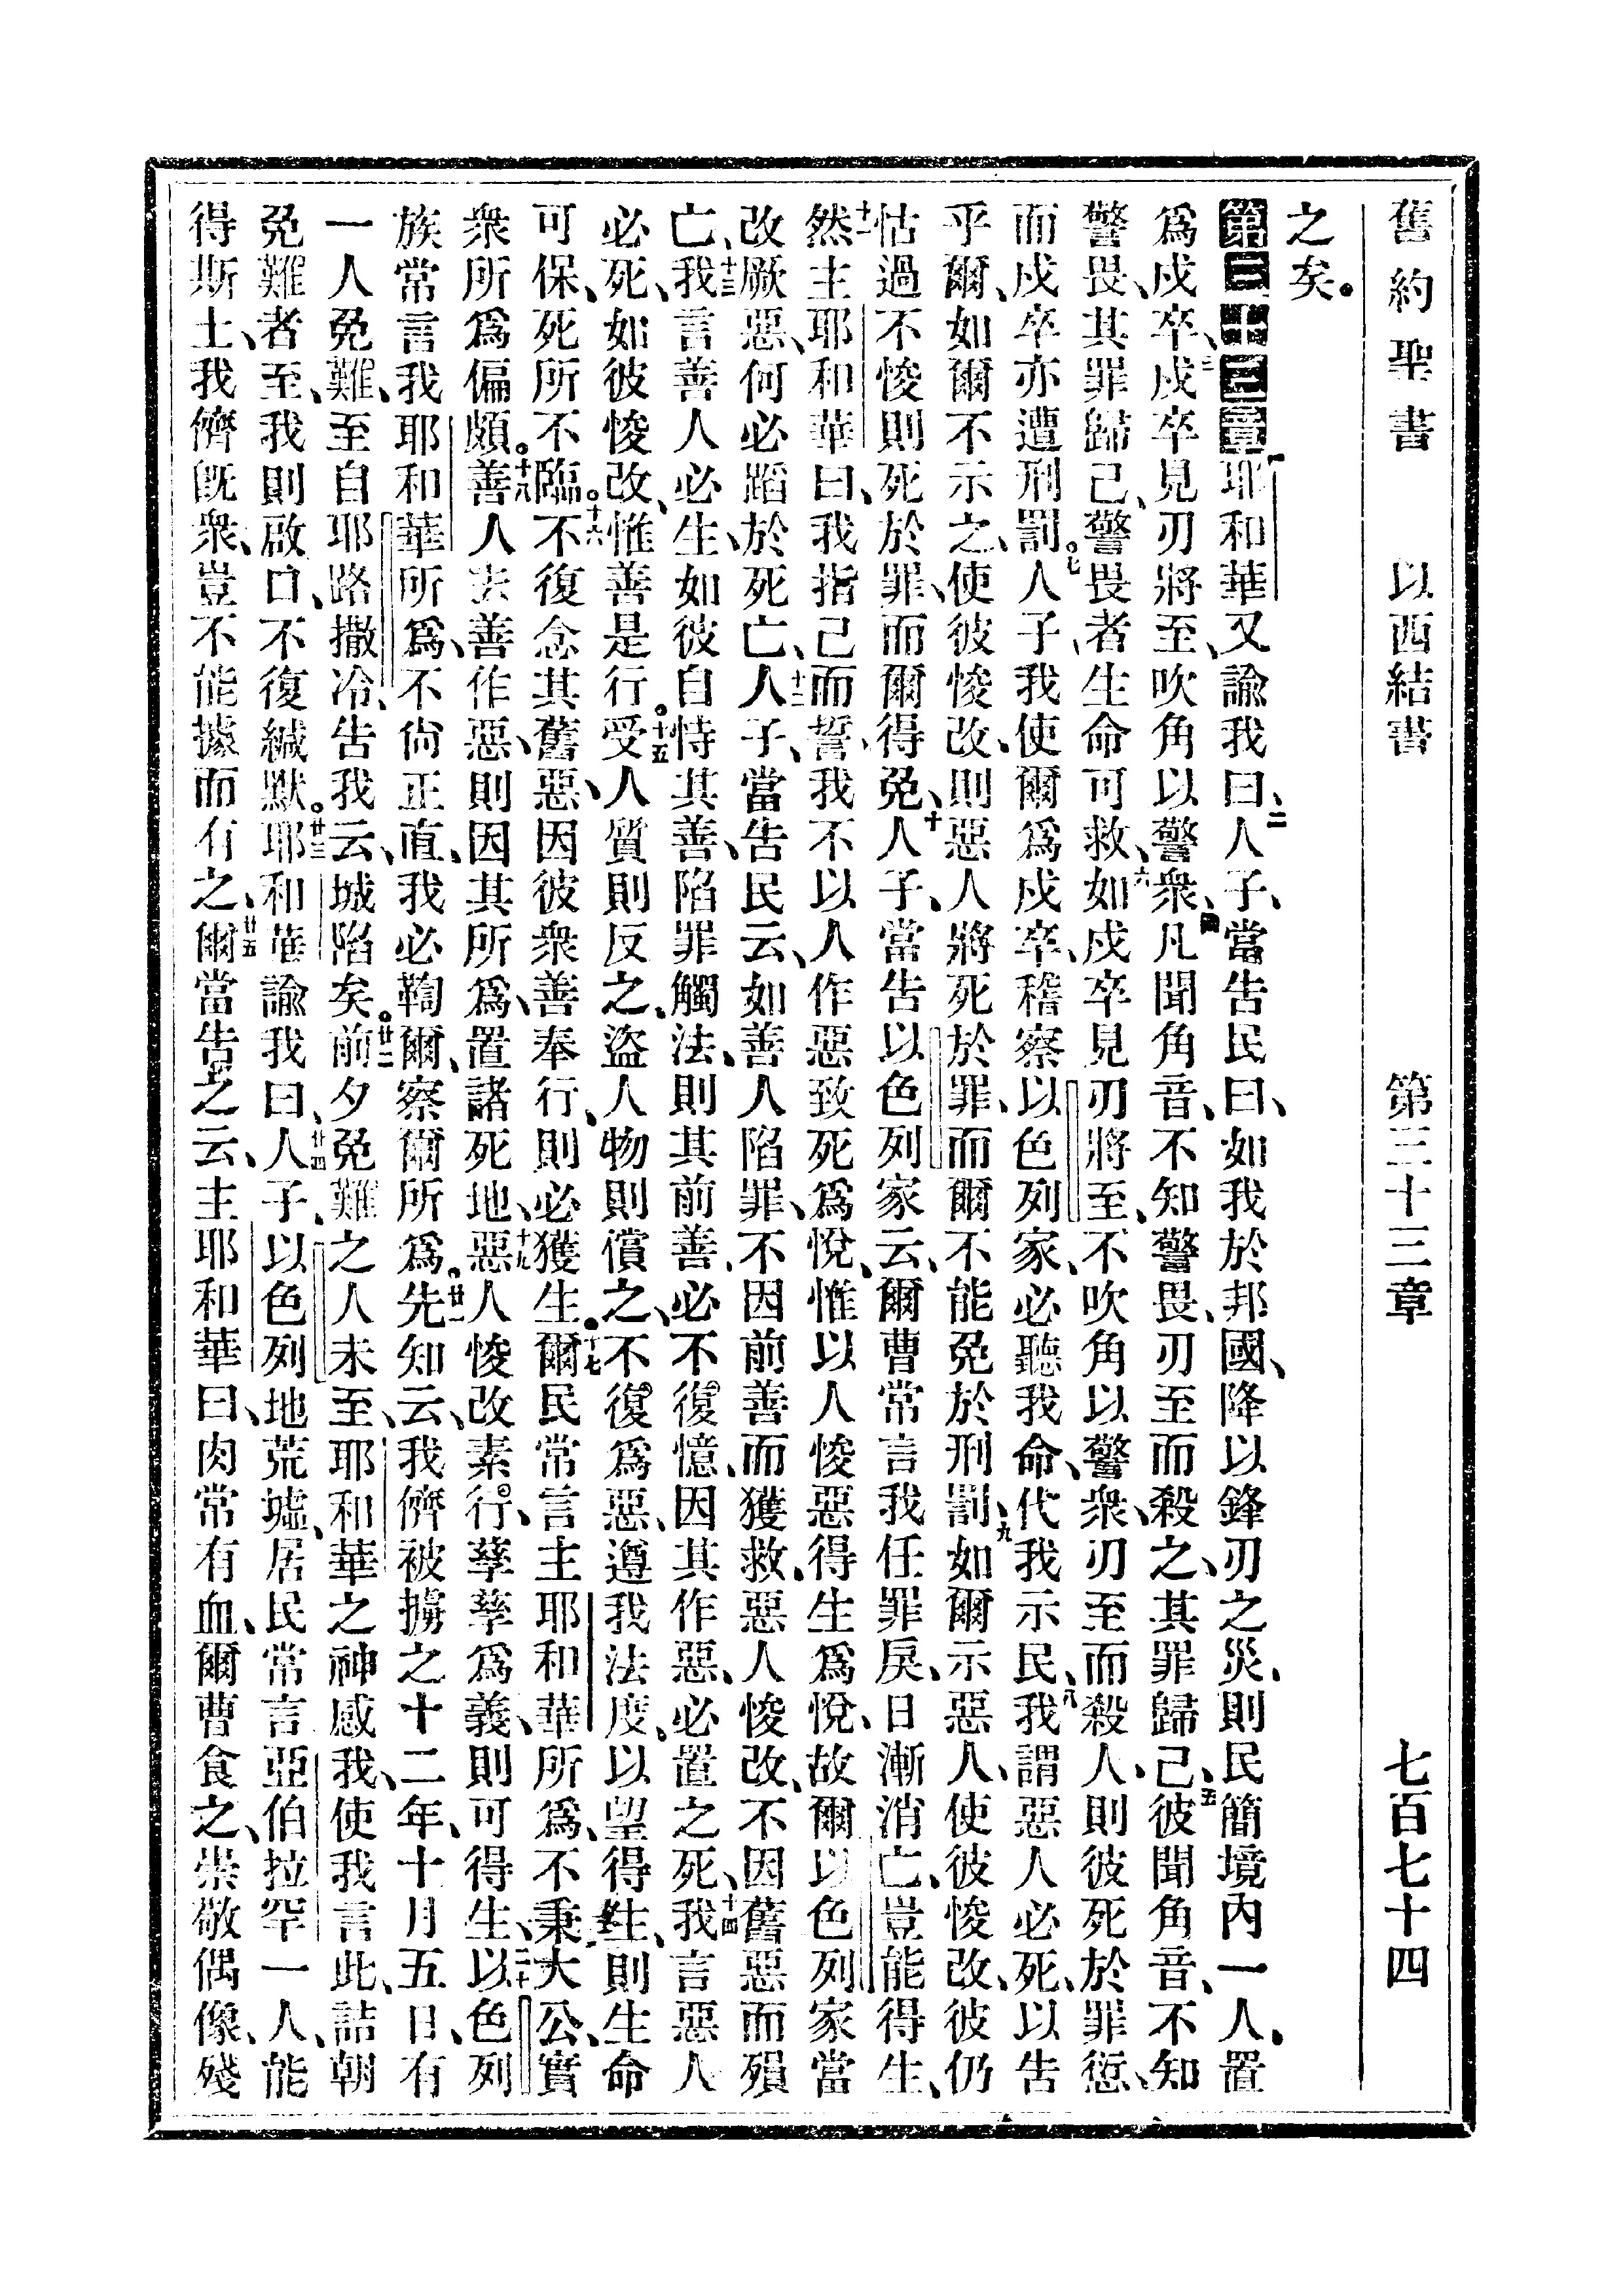 舊約聖書 以西結書 第三十三章 七百七十四
之矣。
第三十三章 一耶和華又諭我曰、二人子、當告民曰、如我於邦國、降以鋒刃之災、則民簡境內一人、置
爲戍卒、三戍卒見刃將至、吹角以警衆、四凡聞角音、不知警畏、刃至而殺之、其罪歸己、五彼聞角音、不知
警畏、其罪歸己、警畏者生命可救、六如戍卒見刃將至、不吹角以警衆、刃至而殺人、則彼死於罪愆、
而戍卒亦遭刑罰。七人子、我使爾爲戍卒、稽察以色列家、必聽我命、代我示民、八我謂惡人必死、以告
乎爾、如爾不示之、使彼悛改、則惡人將死於罪、而爾不能免於刑罰、九如爾示惡人、使彼悛改、彼仍
怙過不悛、則死於罪、而爾得免、十人子、當告以色列家云、爾曹常言我任罪戾、日漸消亡、豈能得生、
十一然主耶和華曰、我指己而誓、我不以人作惡致死爲悅、惟以人悛惡得生爲悅、故爾以色列家當
改厥惡、何必蹈於死亡、十二人子、當告民云、如善人陷罪、不因前善而獲救、惡人悛改、不因舊惡而殞
亡、十三我言善人必生、如彼自恃其善、陷罪觸法、則其前善、必不復憶、因其作惡、必置之死、十四我言惡人
必死、如彼悛改、惟善是行。十五受人質則反之、盜人物則償之、不復爲惡、遵我法度、以望得生、則生命
可保、死所不臨。十六不復念其舊惡、因彼衆善奉行、則必獲生。十七爾民常言主耶和華所爲、不秉大公、實
衆所爲偏頗。十八善人去善作惡、則因其所爲、置諸死地、十九惡人悛改素行、孳孳爲義、則可得生、二十以色列
族常言我耶和華所爲、不尙正直、我必鞫爾、察爾所爲。廿一先知云、我儕被擄之十二年、十月五日、有
一人免難、至自耶路撒冷、告我云、城陷矣。廿二前夕免難之人未至、耶和華之神感我、使我言此、詰朝
免難者至、我則啟口、不復緘默。廿三耶和華諭我曰、廿四人子、以色列地荒墟、居民常言、亞伯拉罕一人、能
得斯土、我儕旣衆、豈不能據而有之、廿五爾當告之云、主耶和華曰、肉常有血、爾曹食之、崇敬偶像、殘